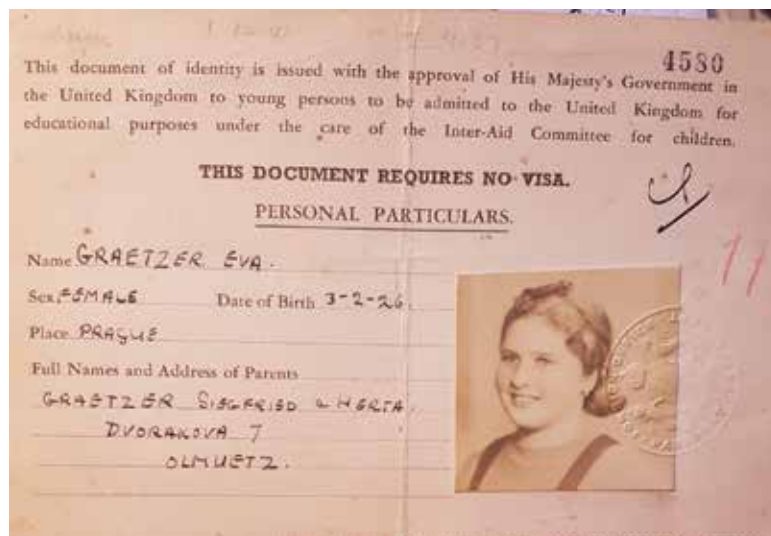 4580
This document of identity is issued with the approval of His Majesty's Government in
the United Kingdom to young persons to be admitted to the United Kingdom for
educational purposes under the care of the Inter-Aid Committee for children.
THIS DOCUMENT REQUIRES NO VISA.
PERSONAL PARTICULARS.
Name GRAETZER EVA.
Sex FEMALE Date of Birth 3-2-26.
Place PRAGUE
Full Names and Address of Parents
GRAETZER SIEGFRIED & HERTA.
DVORAKOVA 7
OLMUETZ.